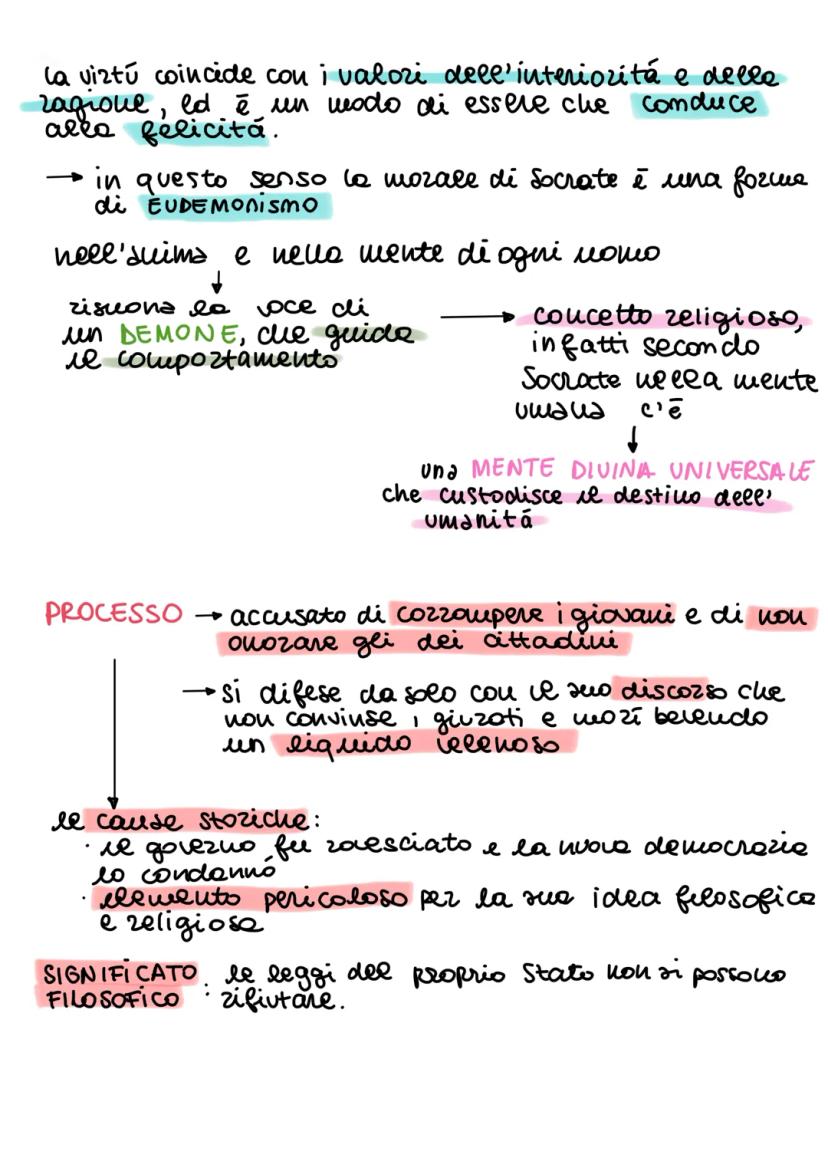 la virtú coincide con i valori dell'interioritá e della
ragione, ed é un modo di essere che conduce
alla felicitá.
→ in questo senso la morale di Socrate é una forma
di EUDEMONISMO
nell'anima e nella mente di ogni uomo
↓
risuona la voce di
un DEMONE, che guida
il comportamento
→ concetto religioso,
infatti secondo
Socrate nella mente
umana c'é
↓
una MENTE DIVINA UNIVERSALE
che custodisce il destino dell'
umanitá
PROCESSO → accusato di corrompere i giovani e di non
onorare gli dei cittadini
→ si difese da solo con il suo discorso che
non convinse i giurati e morí bevendo
un liquido velenoso
le cause storiche:
· il governo fu rovesciato e la nuova democrazia
lo condannó
· elemento pericoloso per la sua idea filosofica
e religiosa
SIGNIFICATO : le leggi del proprio Stato non si possono
FILOSOFICO rifiutare.